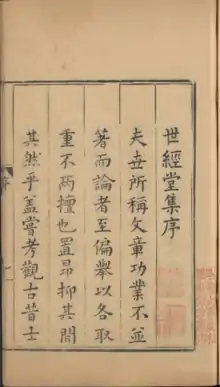 世經堂集序
夫世所稱文章功業不並
著而論者至偏舉以各取
重不兩擅也置昻抑其間
其然乎蓋嘗考觀古昔士
序